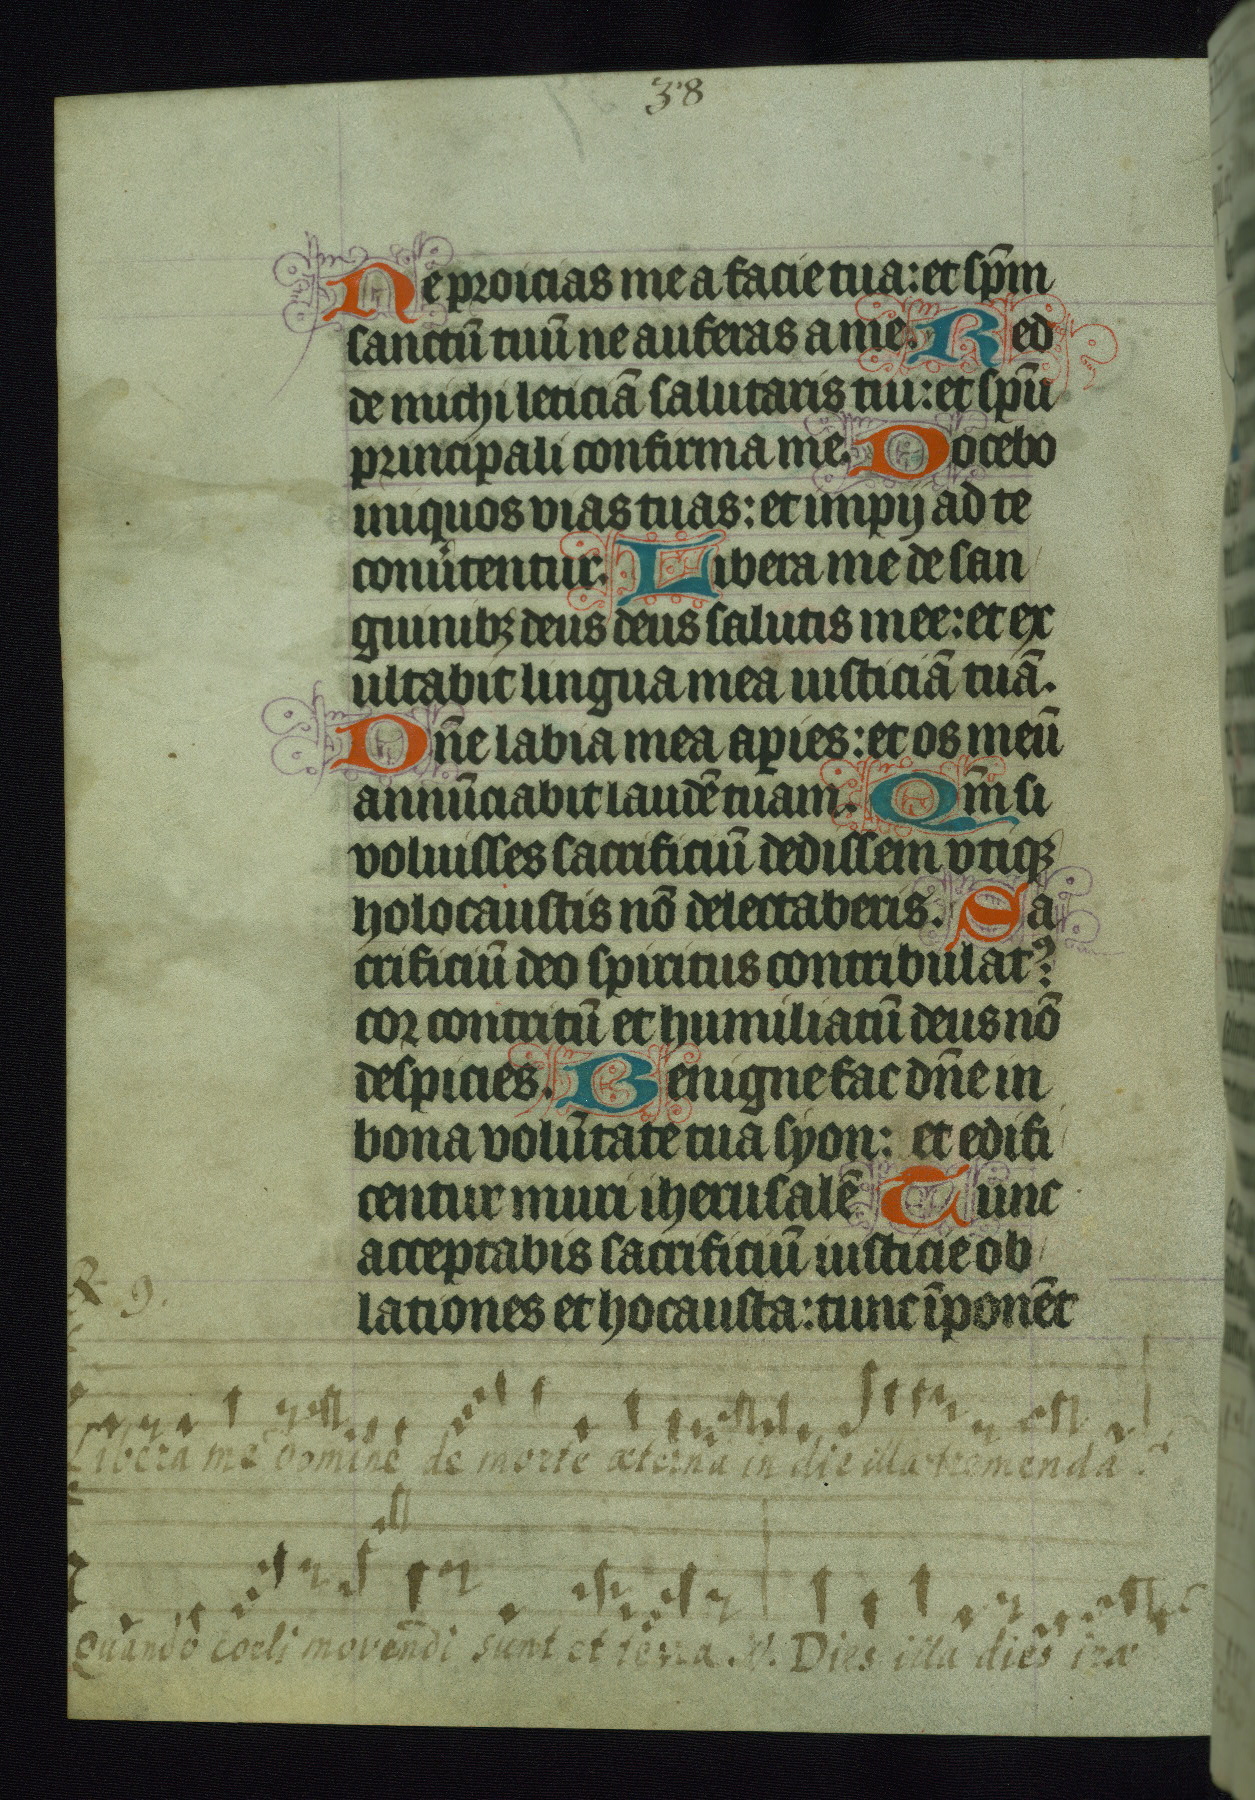 38
Ne proicias me a facie tua: et sp̄m
sanctū tuū ne auferas a me. Red
de michi leticiā salutaris tui: et spū
principali confirma me. Docebo
iniquos vias tuas: et impij ad te
conūtentur. Libera me de san
guinibꝫ deus deus salutis mee: et ex
ultabit lingua mea iusticiā tuā.
Dn̄e labia mea apies: et os meū
annūciabit laudē tuam. Qm̄ si
voluisses sacrificiū dedissem vtiqꝫ
holocaustis nō delectaberis. Sa
crificiū deo spiritus contribulatꝰ:
cor contritū et humiliatū deus nō
despicies. Benigne fac dn̄e in
bona volūtate tua syon: et edifi
centur muri iherusalē Tunc
acceptabis sacrificiū iusticie ob
lationes et hocausta: tunc īponēt
R. 9.
Libera me Domine de morte æterna in die illa tremenda:
Quando coeli movendi sunt et terra. V. Dies illa dies iræ